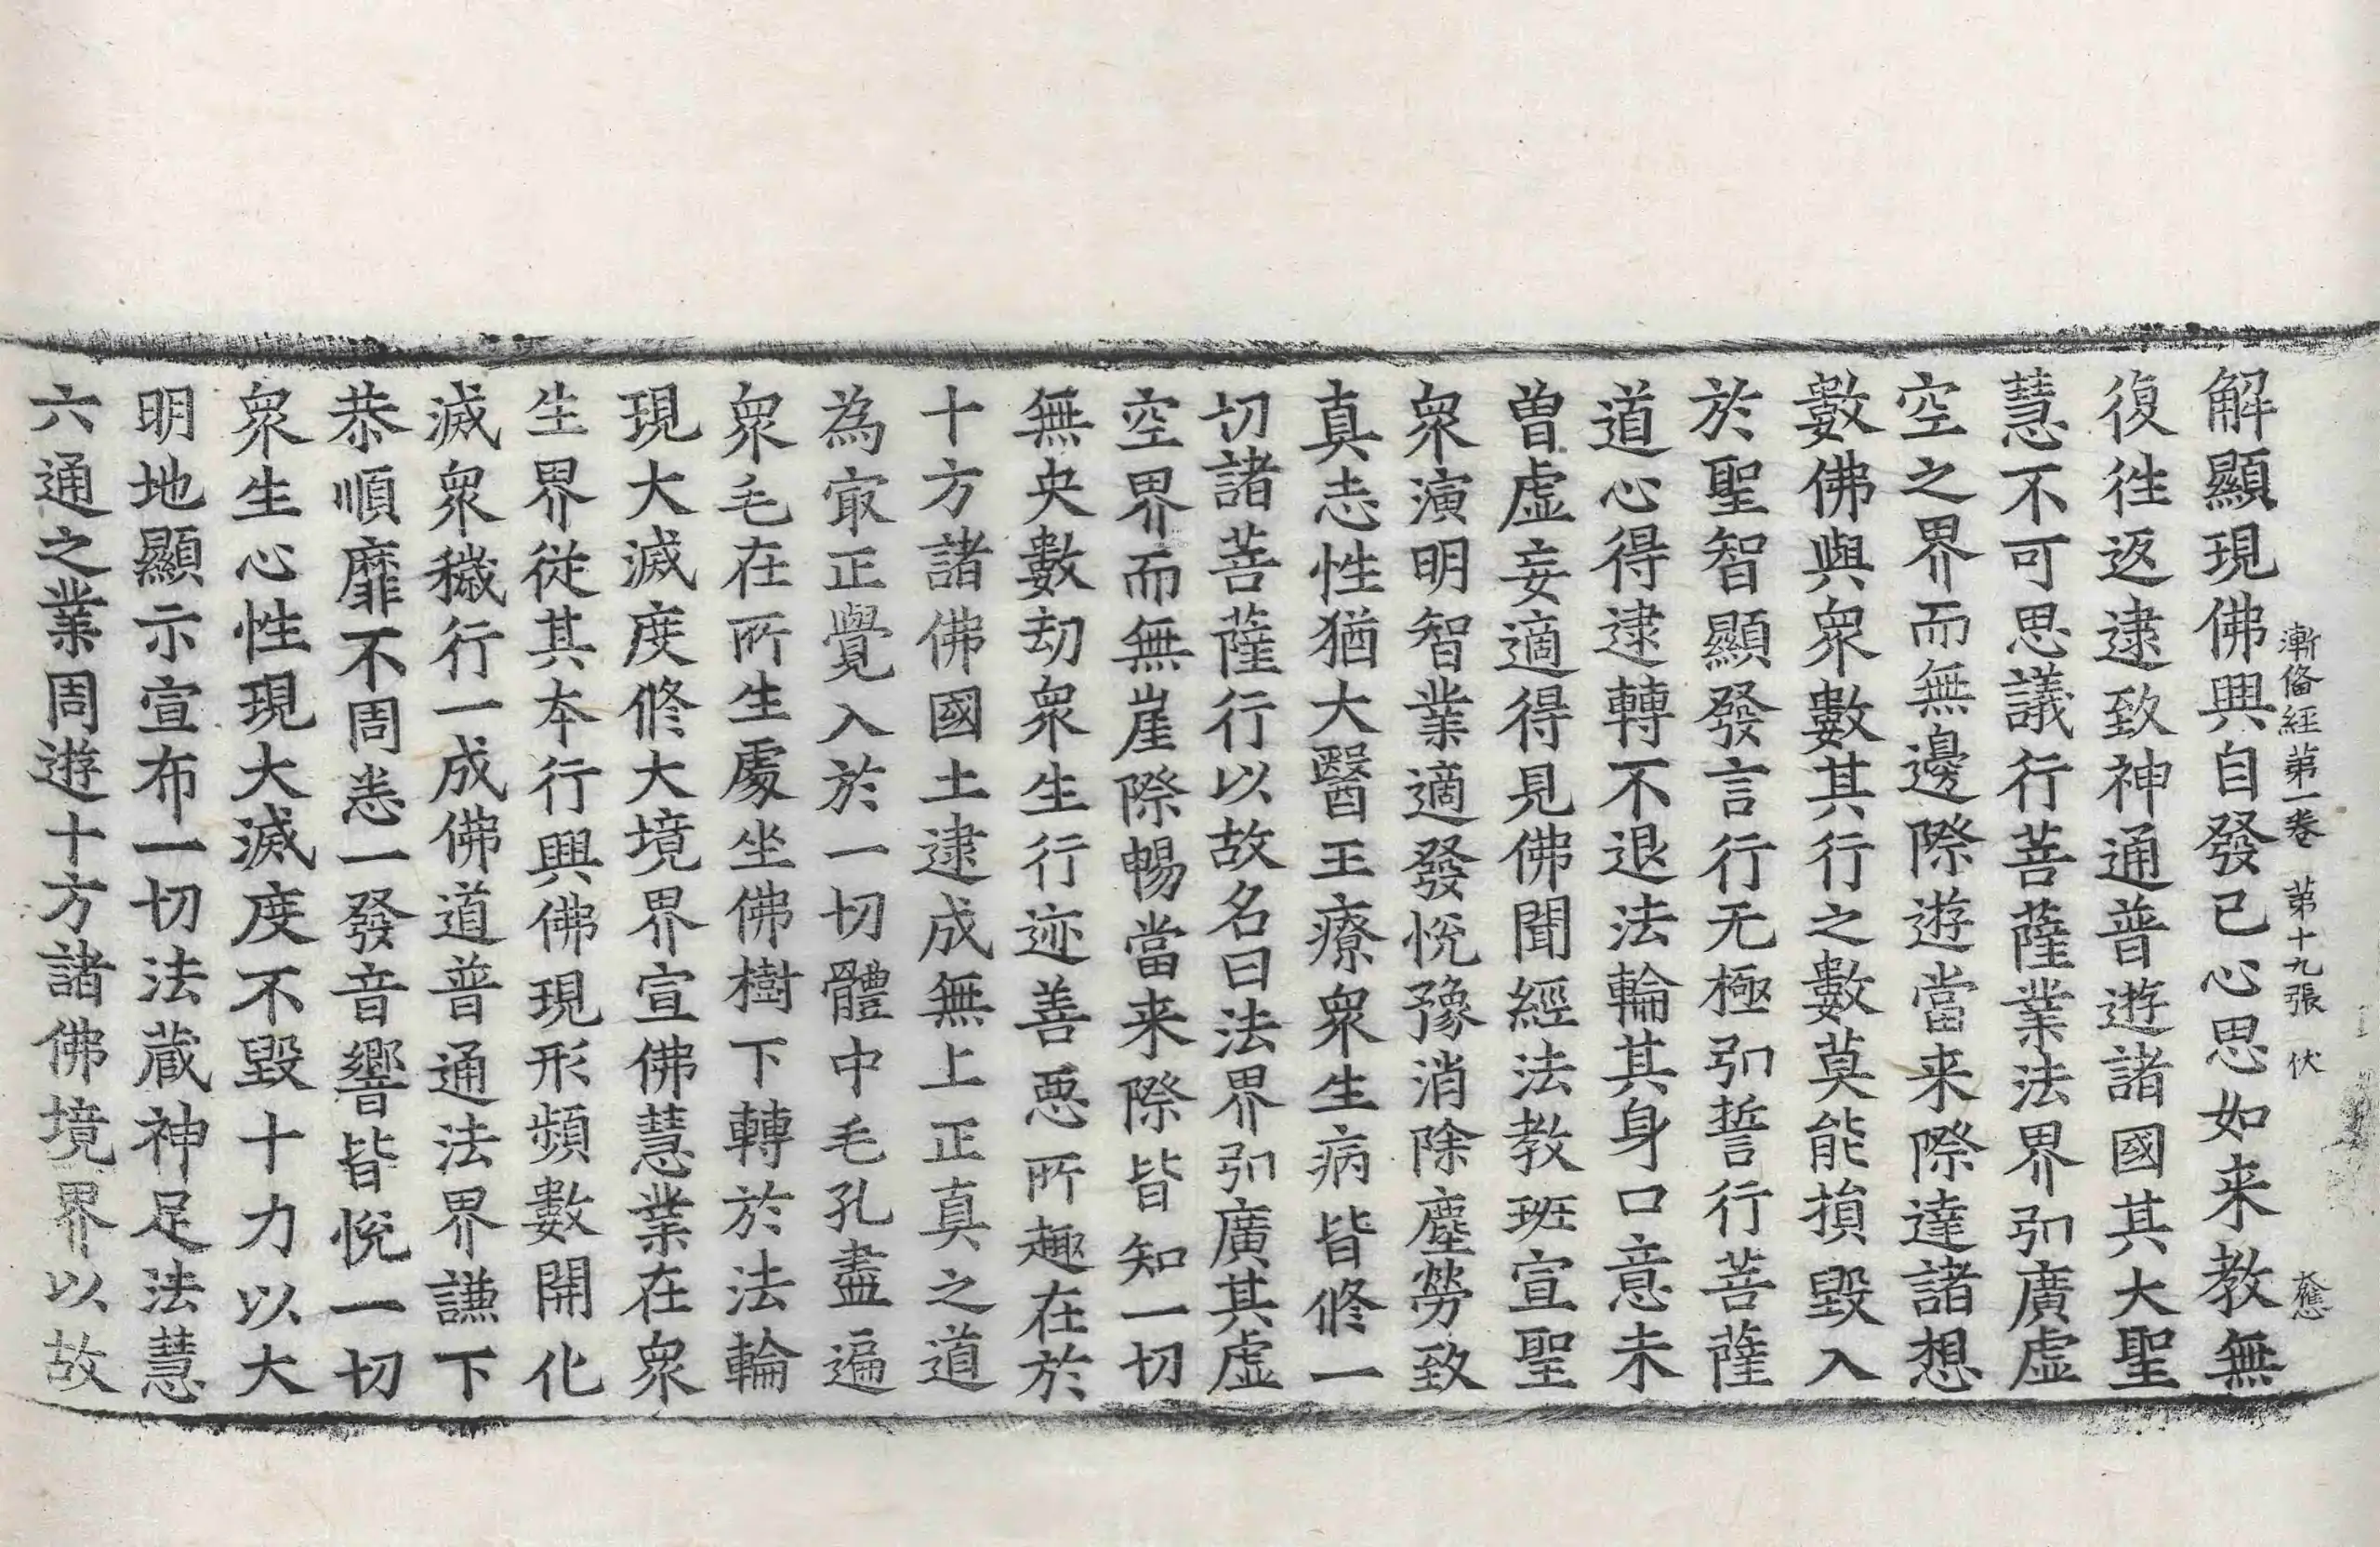 漸俻經第一卷 第十九張 伏
解顯現佛興自發已心思如来教無
復徃返逮致神通普遊諸國其大聖
慧不可思議行菩薩業法界弘廣虛
空之界而無邊際遊當来際達諸想
數佛與衆數其行之數莫能損毀入
於聖智顯發言行无極弘誓行菩薩
道心得逮轉不退法輪其身口意未
曽虛妄適得見佛聞經法教班宣聖
衆演明智業適發悅豫消除塵勞致
真志性猶大醫王療衆生病皆修一
切諸菩薩行以故名曰法界弘廣其虛
空界而無崖際暢當来際皆知一切
無央數劫衆生行迹善惡所趣在於
十方諸佛國土逮成無上正真之道
為㝡正覺入於一切體中毛孔盡遍
衆毛在所生處坐佛樹下轉於法輪
現大滅度修大境界宣佛慧業在衆
生界從其本行興佛現形頻數開化
滅衆穢行一成佛道普通法界謙下
恭順靡不周恙一發音響皆悅一切
衆生心性現大滅度不毀十力以大
明地顯示宣布一切法蔵神足法慧
六通之業周遊十方諸佛境界以故